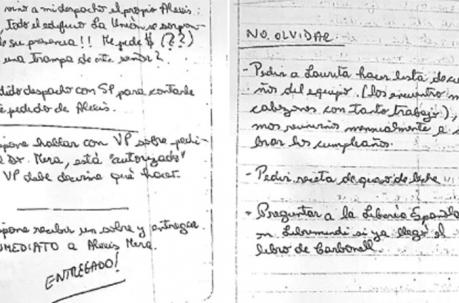 vino a mi despacho el propio Alexis:
¡Todo el edificio La Unión se sorpren-
su presencia!! Me pide $ (??)
una trampa de este señor?
despacho con SP para contarle
pedido de Alexis.
hablar con VP sobre pedi-
Mera, está "autorizado"
VP debe decirme qué hacer.
recibir un sobre y entregar
INMEDIATO a Alexis Mera.
ENTREGADO!
NO OLVIDAR
- Pedir a Laurita hacer lista de cu
ños del equipo. (los encuentro m
cabezones con tanto trabajo),
mos reunirnos mensualmente a
brar los cumpleaños.
- Pedir receta de queso de leche
- Preguntar a la Librería Española
en Librimundi si ya llegó el
libro de Carbonell